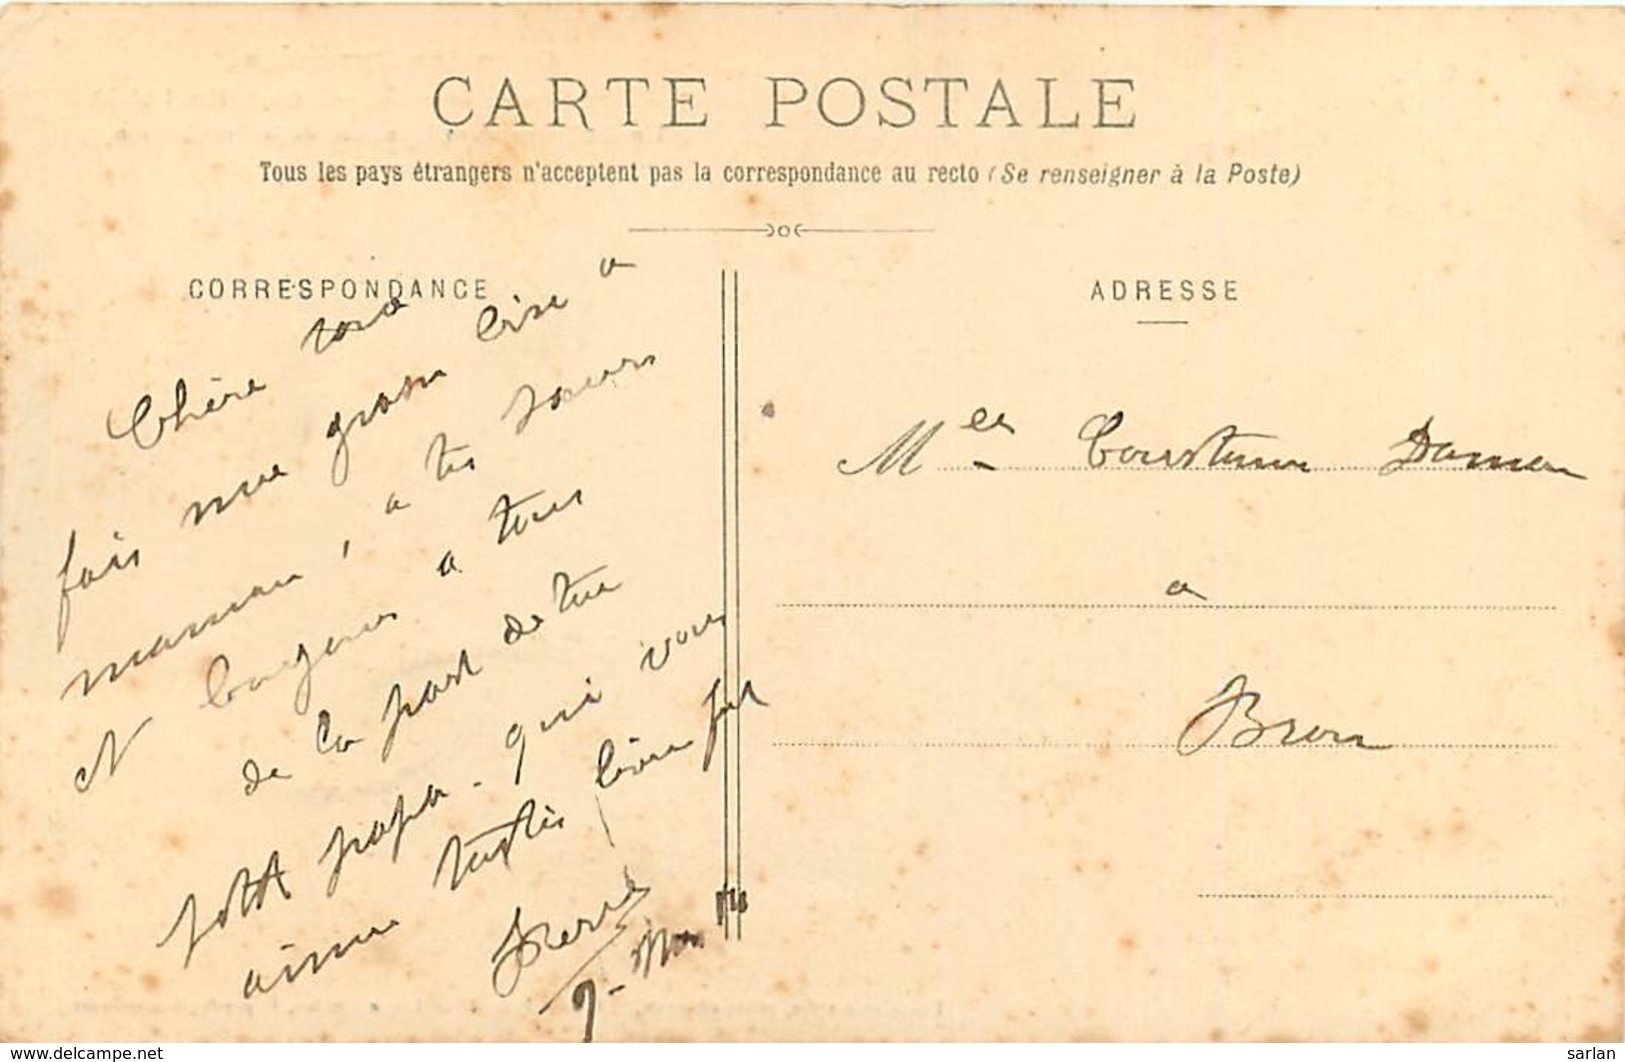 CARTE POSTALE
Tous les pays étrangers n'acceptent pas la correspondance au recto (Se renseigner à la Poste)
CORRESPONDANCE
ADRESSE
Chère
fais une grosse bise a
maman, a tes soeurs
et a tous
de la part de
petit papa - qui vous
aime bien fort
Pierre
9 - Mars
Melle
a
Bron
www.delcampe.net
sarlan